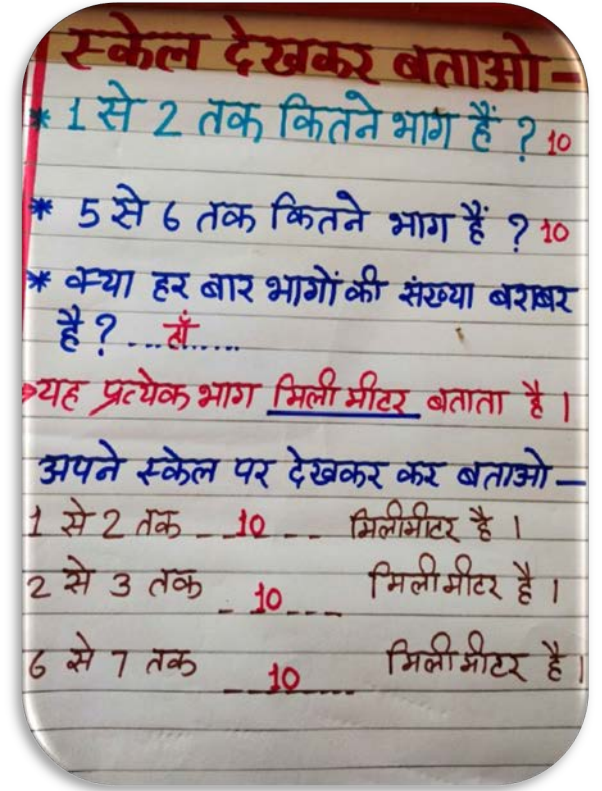 स्केल देखकर बताओ—
* 1 से 2 तक कितने भाग हैं ? 10
* 5 से 6 तक कितने भाग हैं ? 10
* क्या हर बार भागों की संख्या बराबर
है ? ... हाँ .....
यह प्रत्येक भाग मिली मीटर बताता है ।
अपने स्केल पर देखकर कर बताओ—
1 से 2 तक _ 10 _ _ मिलीमीटर है ।
2 से 3 तक _ 10 _ _ _ मिलीमीटर है ।
6 से 7 तक _ 10 _ _ _ मिलीमीटर है ।